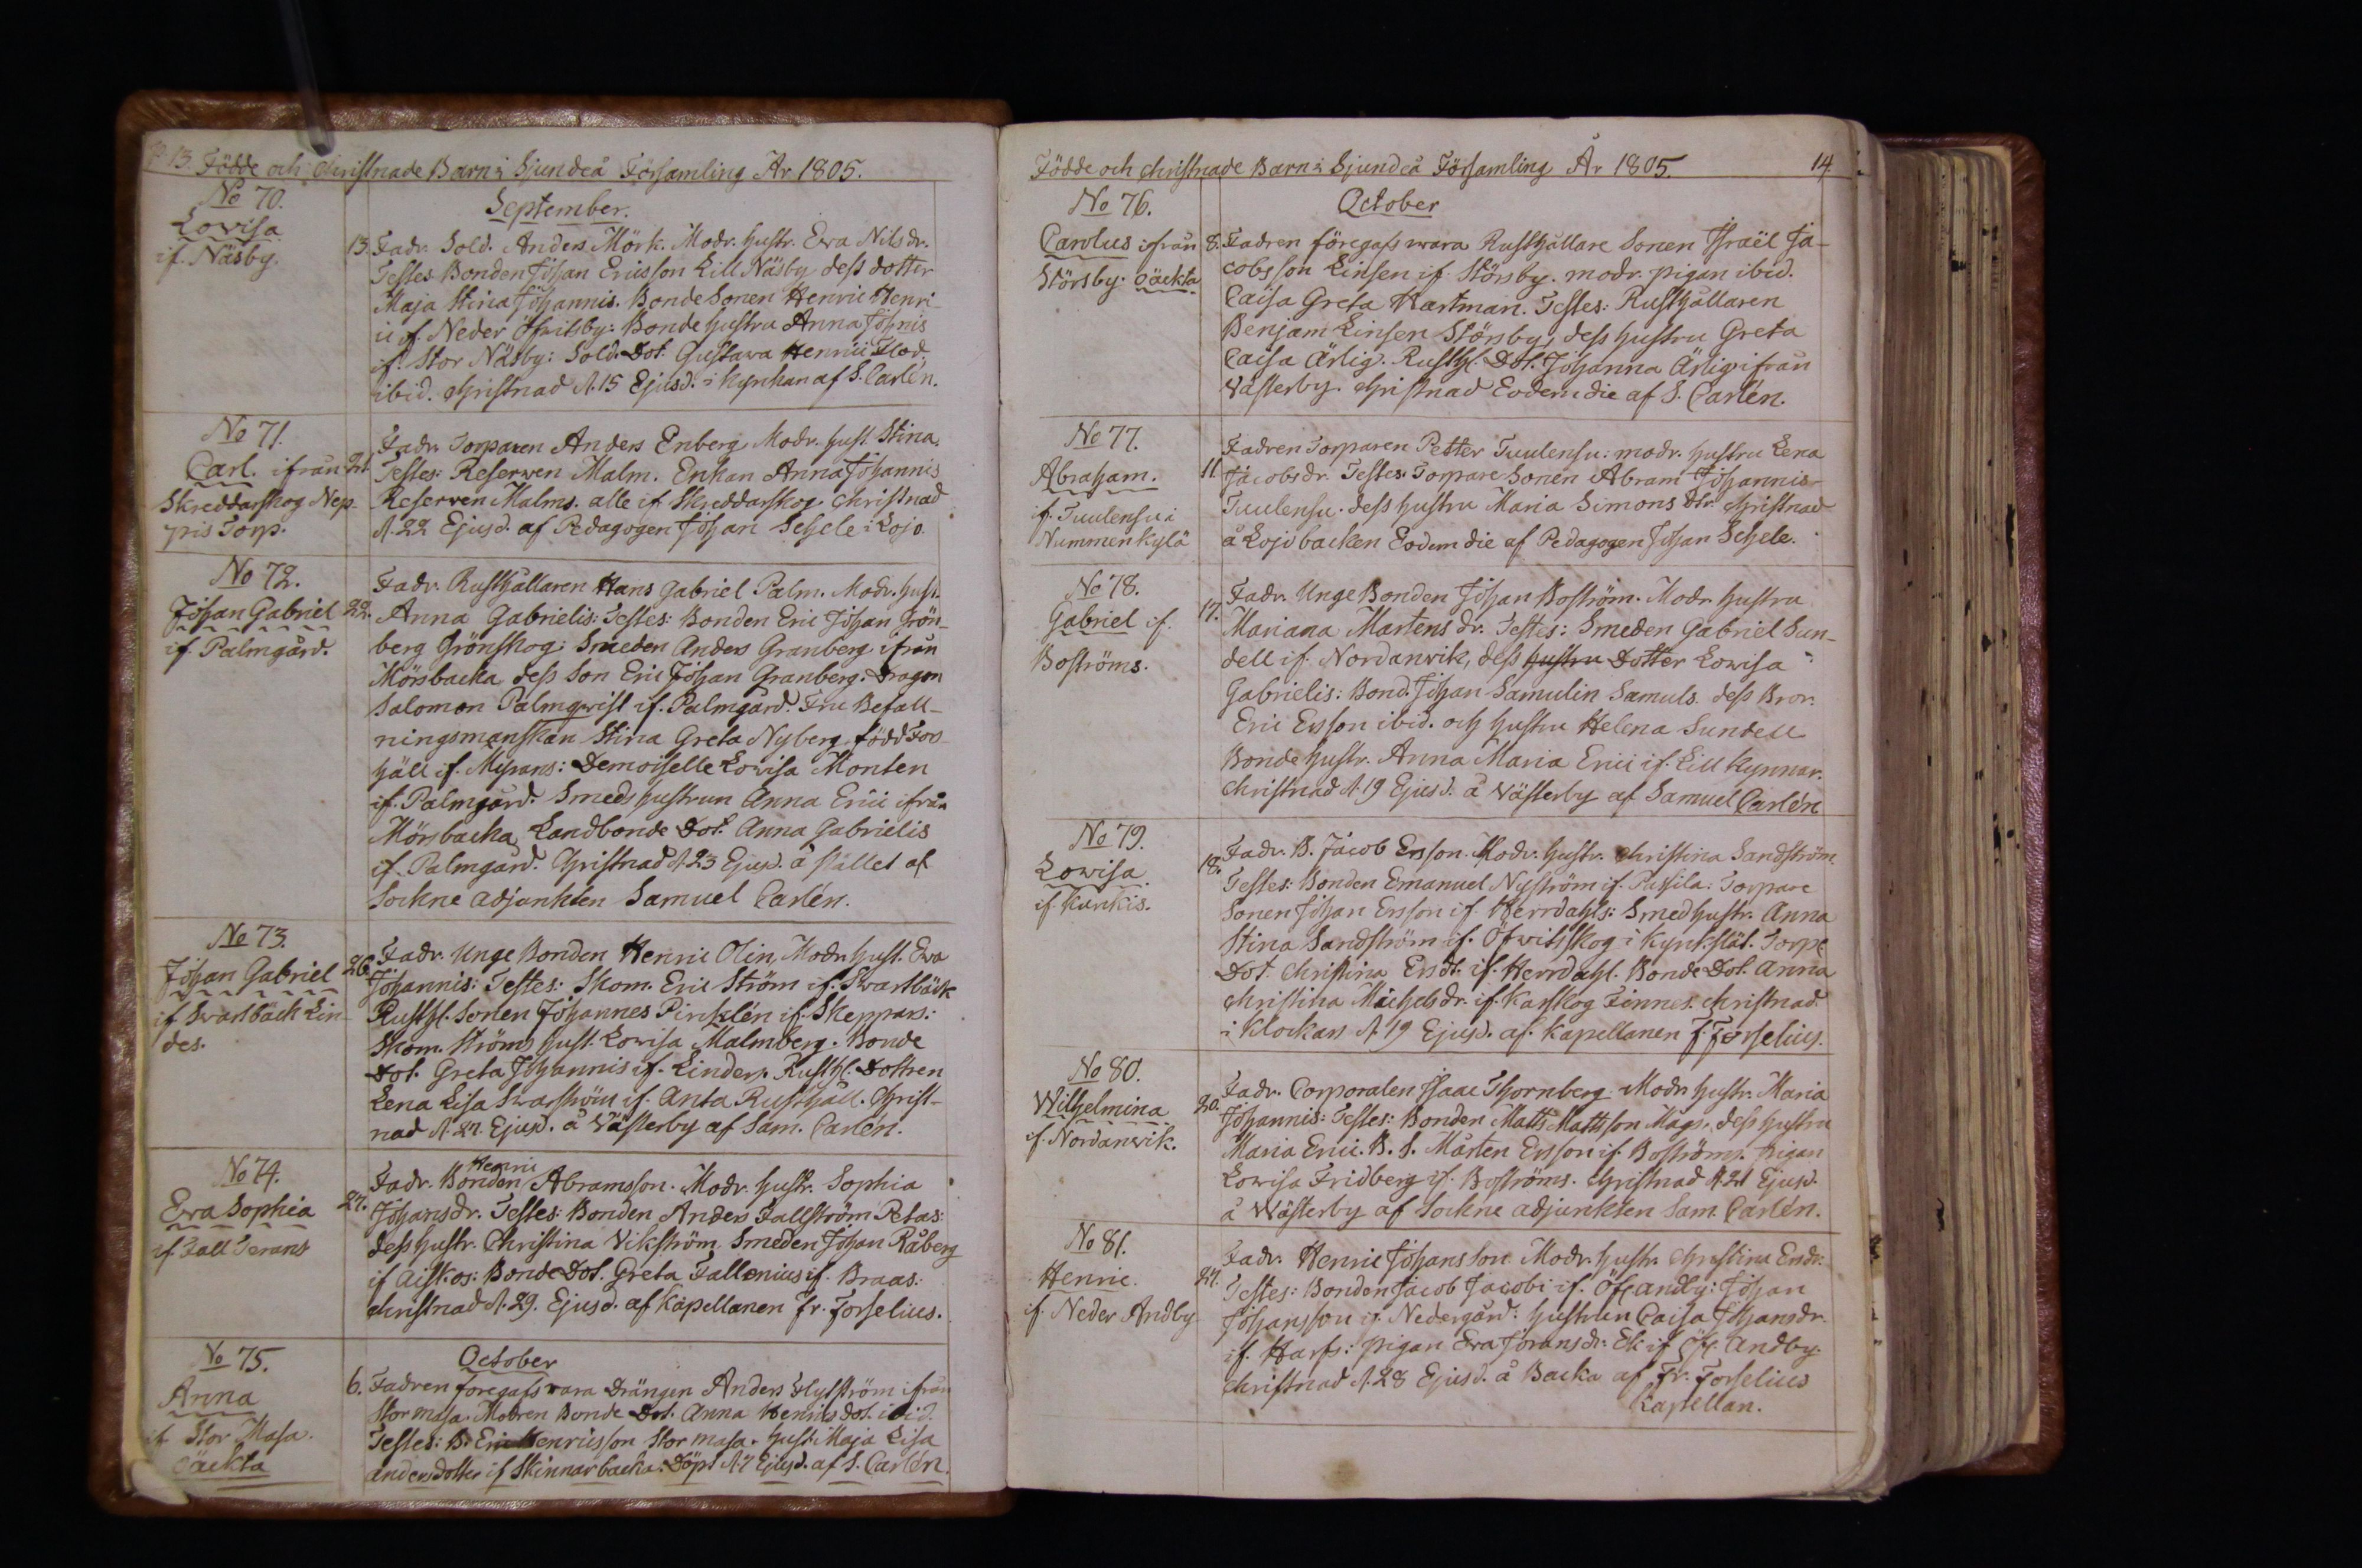 p 13. Födde och Christnade Barn i Sjundeå Församling År 1805.
No 70.
Lovisa
if. Näsby.
September.
13. Fadr. Sold. Anders Mörk. Modr. hustr. Eva Nilsdr.
Testes Bonden Johan Ericsson Lill Näsby dess dotter
Maja Stina Johannis. Bonde Sonen Henric Henri-
ii if. Neder Öfvitsby: Bonde hustru Anna Johnis
if. Stor Näsby: Sold. Dot. Gustava Henrici Flod.
ibid. Christnad d. 15 Ejusd. i kyrckan af S. Carlén.
No 71.
Carl. ifrån
Skreddarskog Nep-
pis Torp.
21. Fadr. Torparen Anders Enberg, Modr. hust. Stina.
Testes: Reserven Malm. Enkan Anna Johannis
Reserven Malms. alle if. Skreddarskog. Christnad
d. 22 Ejusd. af Pedagogen Johan Schele i Lojo.
No 72.
Johan Gabriel
if. Palmgård.
22. Fadr. Rusthållaren Hans Gabriel Palm. Modr. hust.
Anna Gabrielis: Testes: Bonden Eric Johan Grön-
berg Grönskog: Smeden Anders Granberg ifrån
Mörsbacka dess Son Eric Johan Granberg. Dragon
Salomon Palmqvist if. Palmgård. Fru Befall-
ningsmanskan Stina Greta Nyberg, född Fos-
häll if. Myrans: Demoiselle Lovisa Monten
if. Palmgård. Smeds hustrun Anna Erici ifrån
Mörsbacka, Landbonde Dot. Anna Gabrielis
if. Palmgård. Christnad d. 23 Ejusd. å stället af
Sockne adjunkten Samuel Carlén.
No 73.
Johan Gabriel
if. Svartbäck Lin-
des.
26. Fadr. Unge Bonden Henric Olin, Modr. hust. Eva
Johannis: Testes: Skom. Eric Ström if. Svartbäck
Rusthl. Sonen Johannes Pinslén if. Skeppars:
Skom. Ströms hust. Lovisa Malmberg. Bonde
Dot. Greta Johannis if. Linders. Rusthl. Dottren
Lena Lisa Svarström if. Anta Rusthåll. Christ-
nad d. 27. Ejusd. å Västerby af Sam. Carlén.
No 74.
Eva Sophia
if. Fall Jerans
27. Fadr. Bonden Henric Abramsson. Modr. hustr. Sophia
Johansdr. Testes: Bonden Anders Fallström Petas:
dess hustr. Christina Vikström. Smeden Johan Råberg
if Aiskos: Bonde Dot. Greta Fallenius if. Braas:
Christnad d. 29. Ejusd. af Kapellanen Fr. Forselius.
No 75.
Anna
if. Stor Masa.
oäckta
October
6. Fadren foregafs vara Drängen Anders Hylström ifrån
Stor masa. Modren Bonde Dot. Anna Henrics dot. ibid.
Testes: B. Eric Henricsson Stor masa. hust. Maja Lisa
andersdotter if Skinnarbacka. Döpt d. 7 Ejusd. af S. Carlén.
Födde och christnade Barn i Sjundeå Församling År 1805.
14.
No 76.
Carolus ifrån
Störsby. oäckta
October
8. Fadren föregafs wara Rusthållare Sonen Israël Ja-
cobsson Linsen if. Störsby. modr. pigan ibid.
Caisa Greta Hartman. Testes: Rusthållaren
Benjam Linsen Störsby, dess hustru Greta
Caisa Ärlig. Rusthl. Dot. Johanna Ärlig ifrån
Västerby. Christnad Eodem die af S. Carlén.
No 77.
Abraham.
if. Tuulensu i
Nummenkylä
11. Fadren Torparen Petter Tuulensu: modr. hustru Lena
Jacobsdr. Testes: Torpare Sonen Abram Johannis-
Tuulensu. dess hustru Maria Simons dtr. Christnad
å Lojobacken Eodem die af Pedagogen Johan Schele.
No 78.
Gabriel if.
Boströms.
17. Fadr. Unge Bonden Johan Boström. Modr. hustru
Mariana Martens dr. Testes: Smeden Gabriel Sun-
dell if. Nordanvik, dess hustru Dotter Lovisa
Gabrielis: Bond. Johan Samulin Samuls. dess Bror.
Eric Ersson ibid. och hustru Helena Sundell
Bonde hustr. Anna Maria Erici if. Lill Kynnar.
Christnad d. 19 Ejusd. å Västerby af Samuel Carlén
No 79.
Lovisa
if. Kunkis.
18. Fadr. B. Jacob Ersson. Modr. hustr. Christina Sandström
Testes: Bonden Emanuel Nyström if. Pussila: Torpare
Sonen Johan Ersson if. Herrdahls: Smed hustr. Anna
Stina Sandström if. Öfvitsskog i Kynkslät. Torp.
Dot. Christina Ersdt. if. Herrdahl. Bonde Dot. Anna
Christina Michelsdr. if. Karskog Finnes. Christnad
i Klockars d. 19 Ejusd. af. Kapellanen F. Forselius.
No 80.
Wilhelmina
if. Nordanvik.
20. Fadr. Corporalen Isaac Thornberg. Modr. hustr. Maria
Johannis: Testes: Bonden Matts Mattsson Mags. dess hustru
Maria Erici. B. S. Mårten Ersson if. Boströms. Pigan
Lovisa Fridberg if. Boströms. Christnad d. 21 Ejusd.
å Wästerby af Sockne adjunkten Sam. Carlén.
No 81.
Henric.
if. Neder Andby
27. Fadr. Henric Johansson. Modr. hustr. Christina Endr:
Testes: Bonden Jacob Jacobi if. Öf. andby: Johan
Johansson if. Nedergård: hustrun Caisa Johansdr.
if. Harfs: pigan Eva Joransdr. Ek if Öf. Andby.
Christnad d. 28 Ejusd. å Backa af Fr. Forselius
Kapellan.